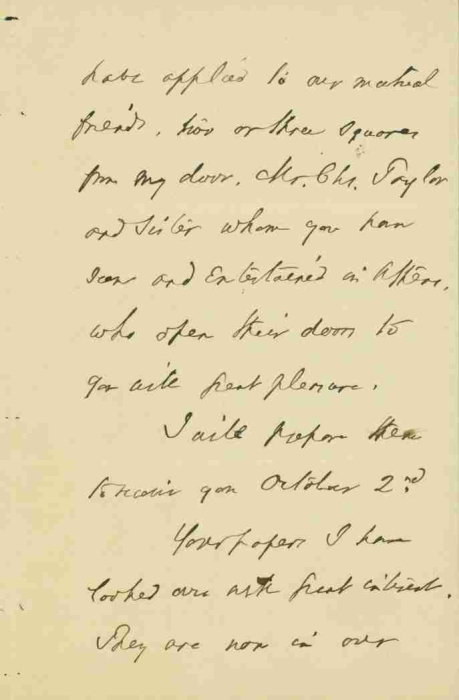 have applied to our mutual
friends, two or three squares
from my door, Mr. Chs. Taylor
and Sister whom you have
seen and entertained in Athens,
who open their doors to
you with great pleasure.
I will prepare them
to receive you October 2nd
Your papers I have
looked over with great interest.
They are now in our